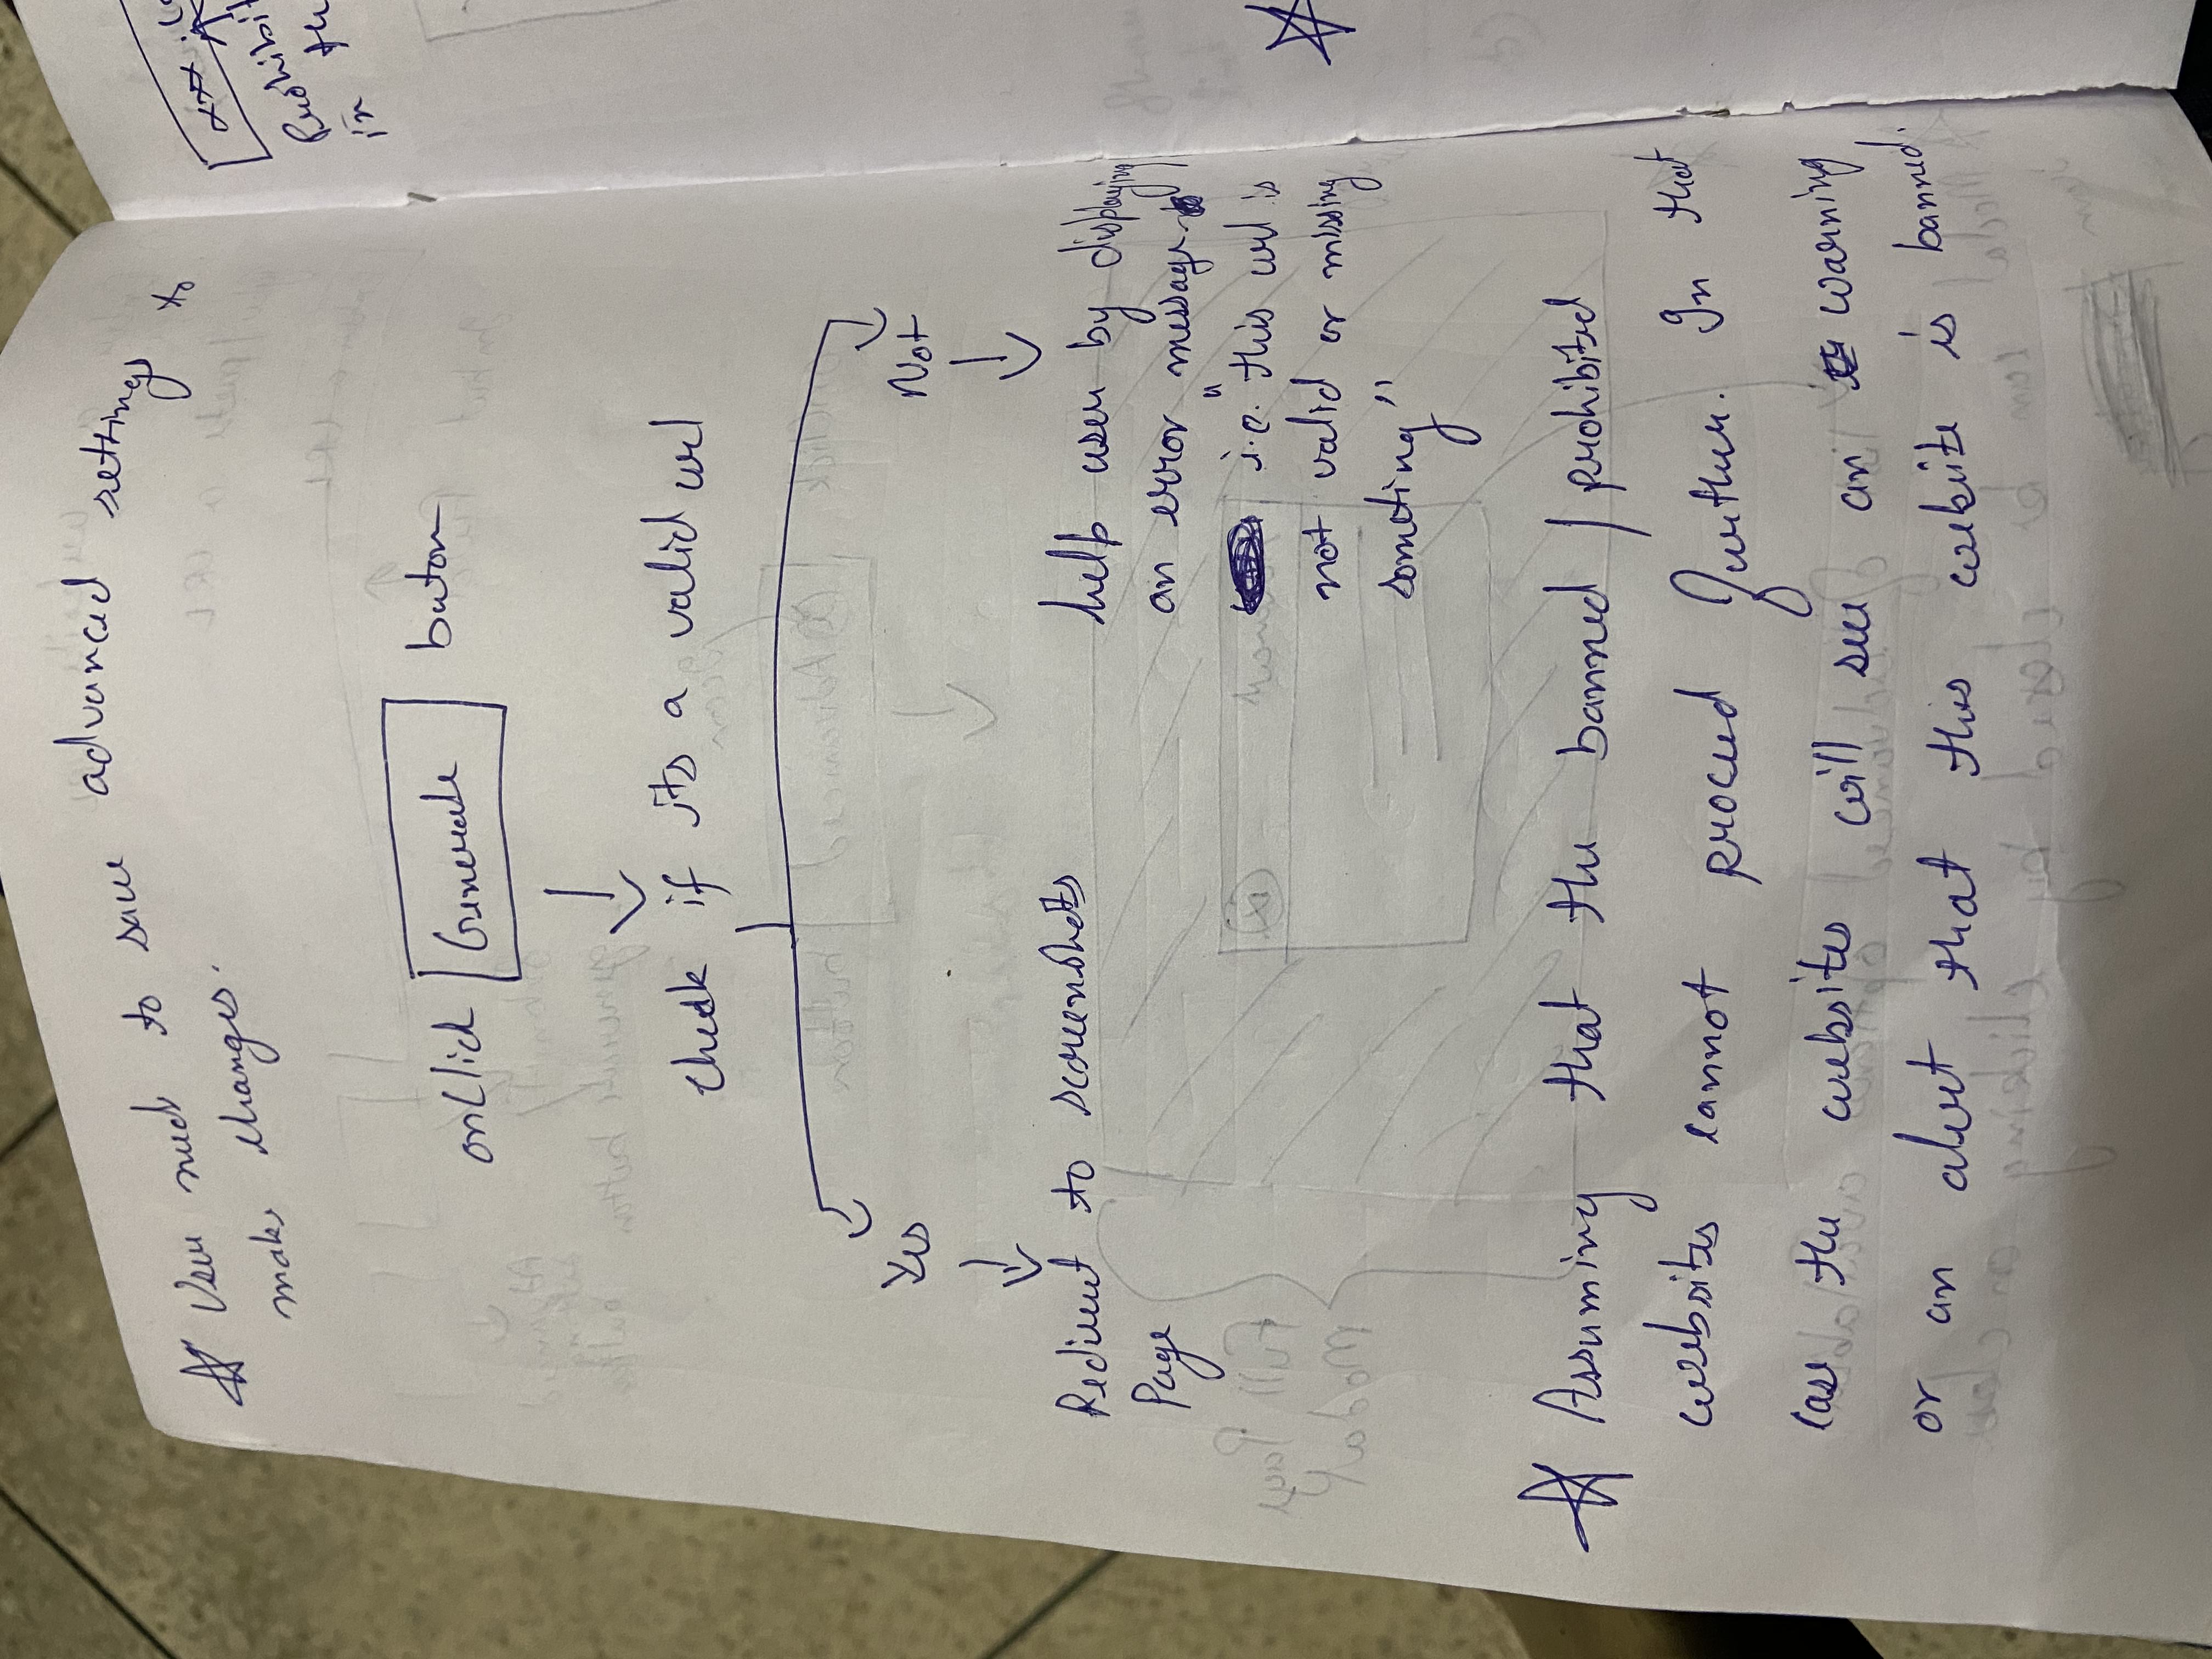 ☆ User needs to save advanced settings to
make changes.
onClick Generate button
check if its a valid url
Yes
Not
Redirect to screenshots
Page
help user by displaying
an error message
i.e. "this url is
not valid or missing
someting"
☆ Assuming that the banned / prohibited
websites cannot proceed further. In that
case the websites will see an warning
or an alert that this website is banned.
xxx.
Prohibit
in the